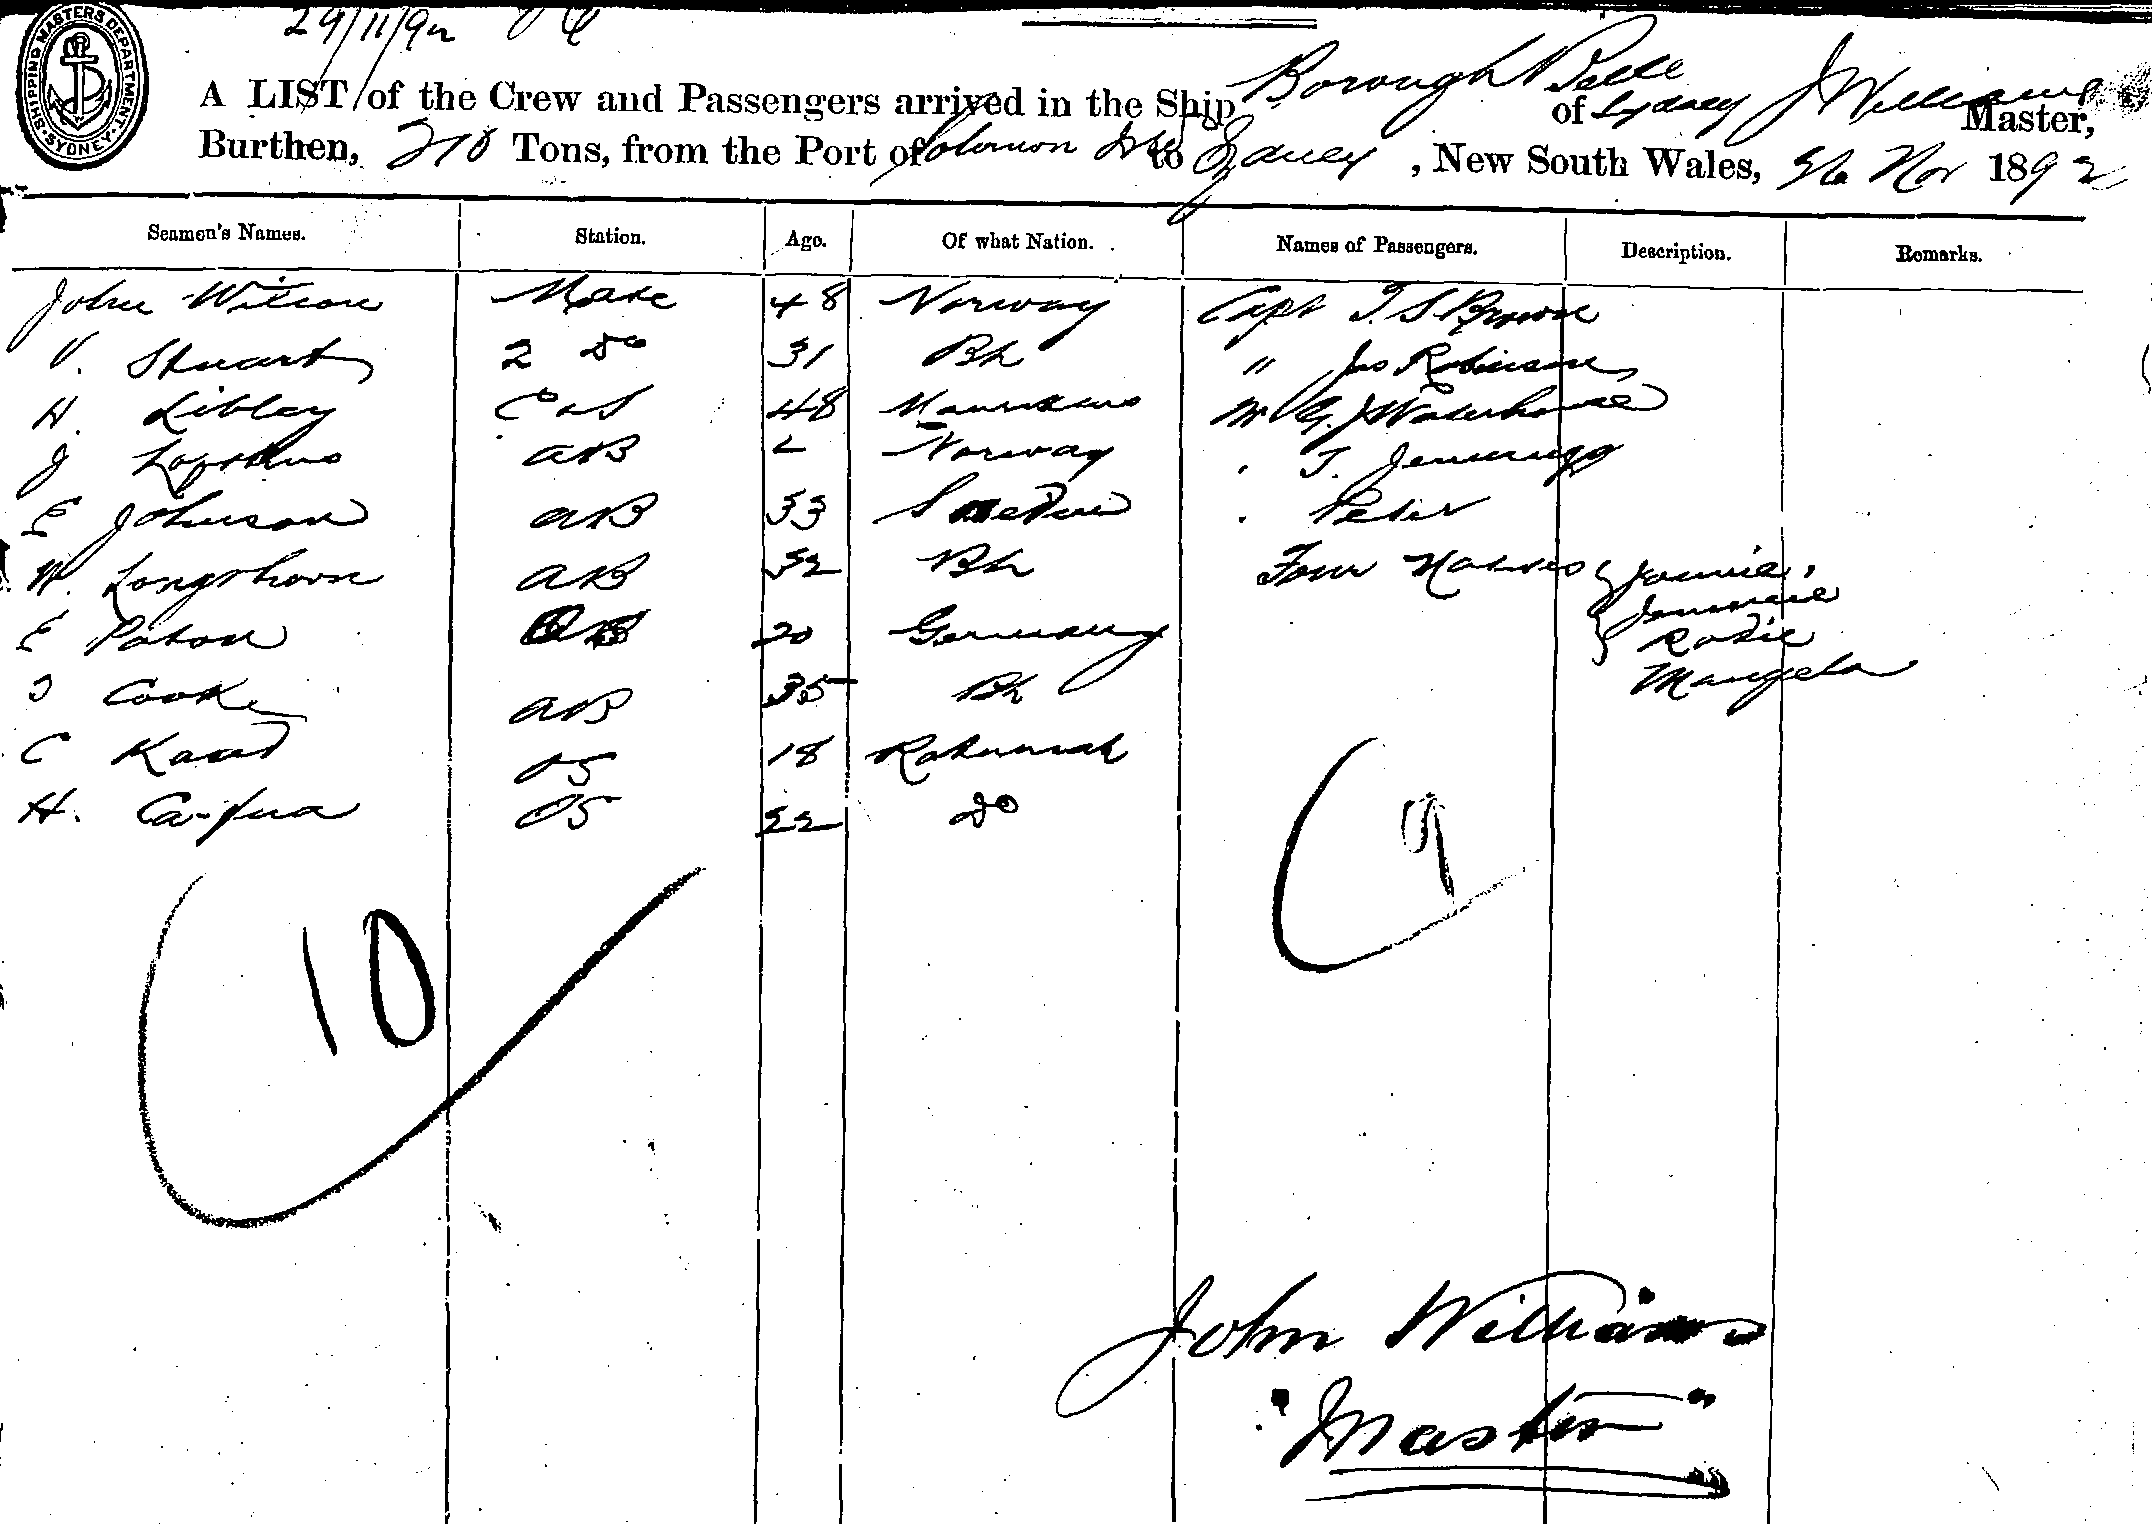 29/11/92
SHIPPING MASTERS DEPARTMENT. SYDNEY.
A LIST of the Crew and Passengers arrived in the Ship Borough Belle of Sydney J Williams Master,
Burthen, 210 Tons, from the Port of Solomon Isles to Sydney, New South Wales, 26 Nov 1892
Seamen's Names. Station. Age. Of what Nation. Names of Passengers. Description. Remarks.
John Wilson Mate 48 Norway Capt T. S Brown
V. Stuart 2 do 31 Bh " Jas Robinson
H. Libley C & S 48 Mauritius Mr G. J Waterhouse
J AB Norway . T. Jennings
E Johnson AB 33 Sweden . Peter
W. Longshorn AB 32 Bh Four Natives Jonnie,
Jimmie
E Paton AB 20 Germany Rosie
Mangela
T Cook AB 35 Bh
C OS 18 Rotumah
H. Ca-fua OS 22 do
10 9
John Williams
"Master"